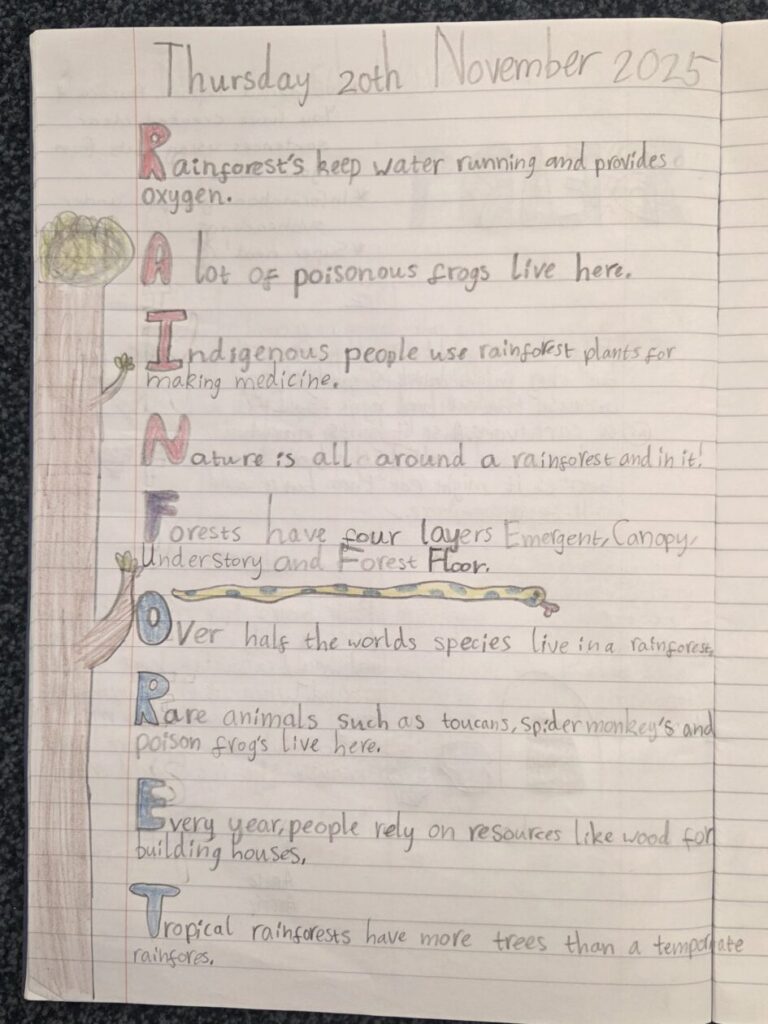 Thursday 20th November 2025
Rainforest's keep water running and provides
oxygen.
A lot of poisonous frogs live here.
Indigenous people use rainforest plants for
making medicine.
Nature is all around a rainforest and in it!
Forests have four layers Emergent, Canopy,
Understory and Forest Floor.
Over half the worlds species live in a rainforest.
Rare animals such as toucans, Spider monkey's and
poison frog's live here.
Every year, people rely on resources like wood for
building houses.
Tropical rainforests have more trees than a temporate
rainfores.